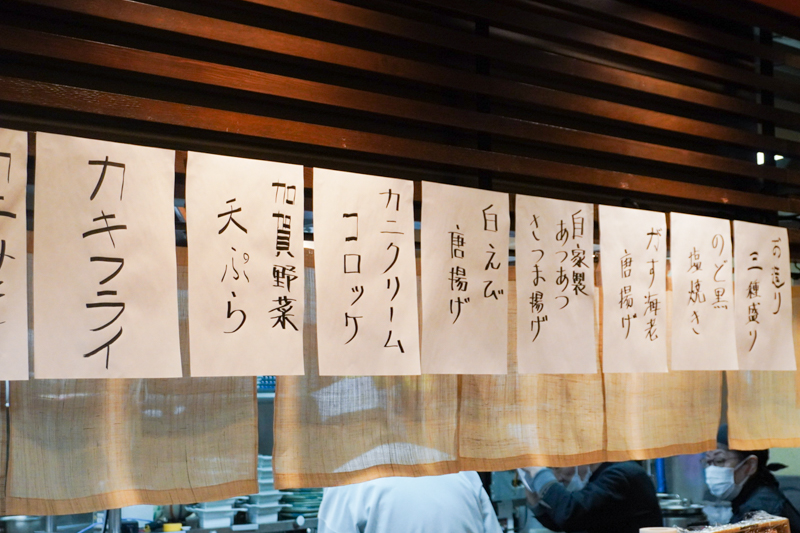 お造り
三種盛り
のど黒
塩焼き
がす海老
唐揚げ
自家製
あつあつ
さつま揚げ
白えび
唐揚げ
カニクリーム
コロッケ
加賀野菜
天ぷら
カキフライ